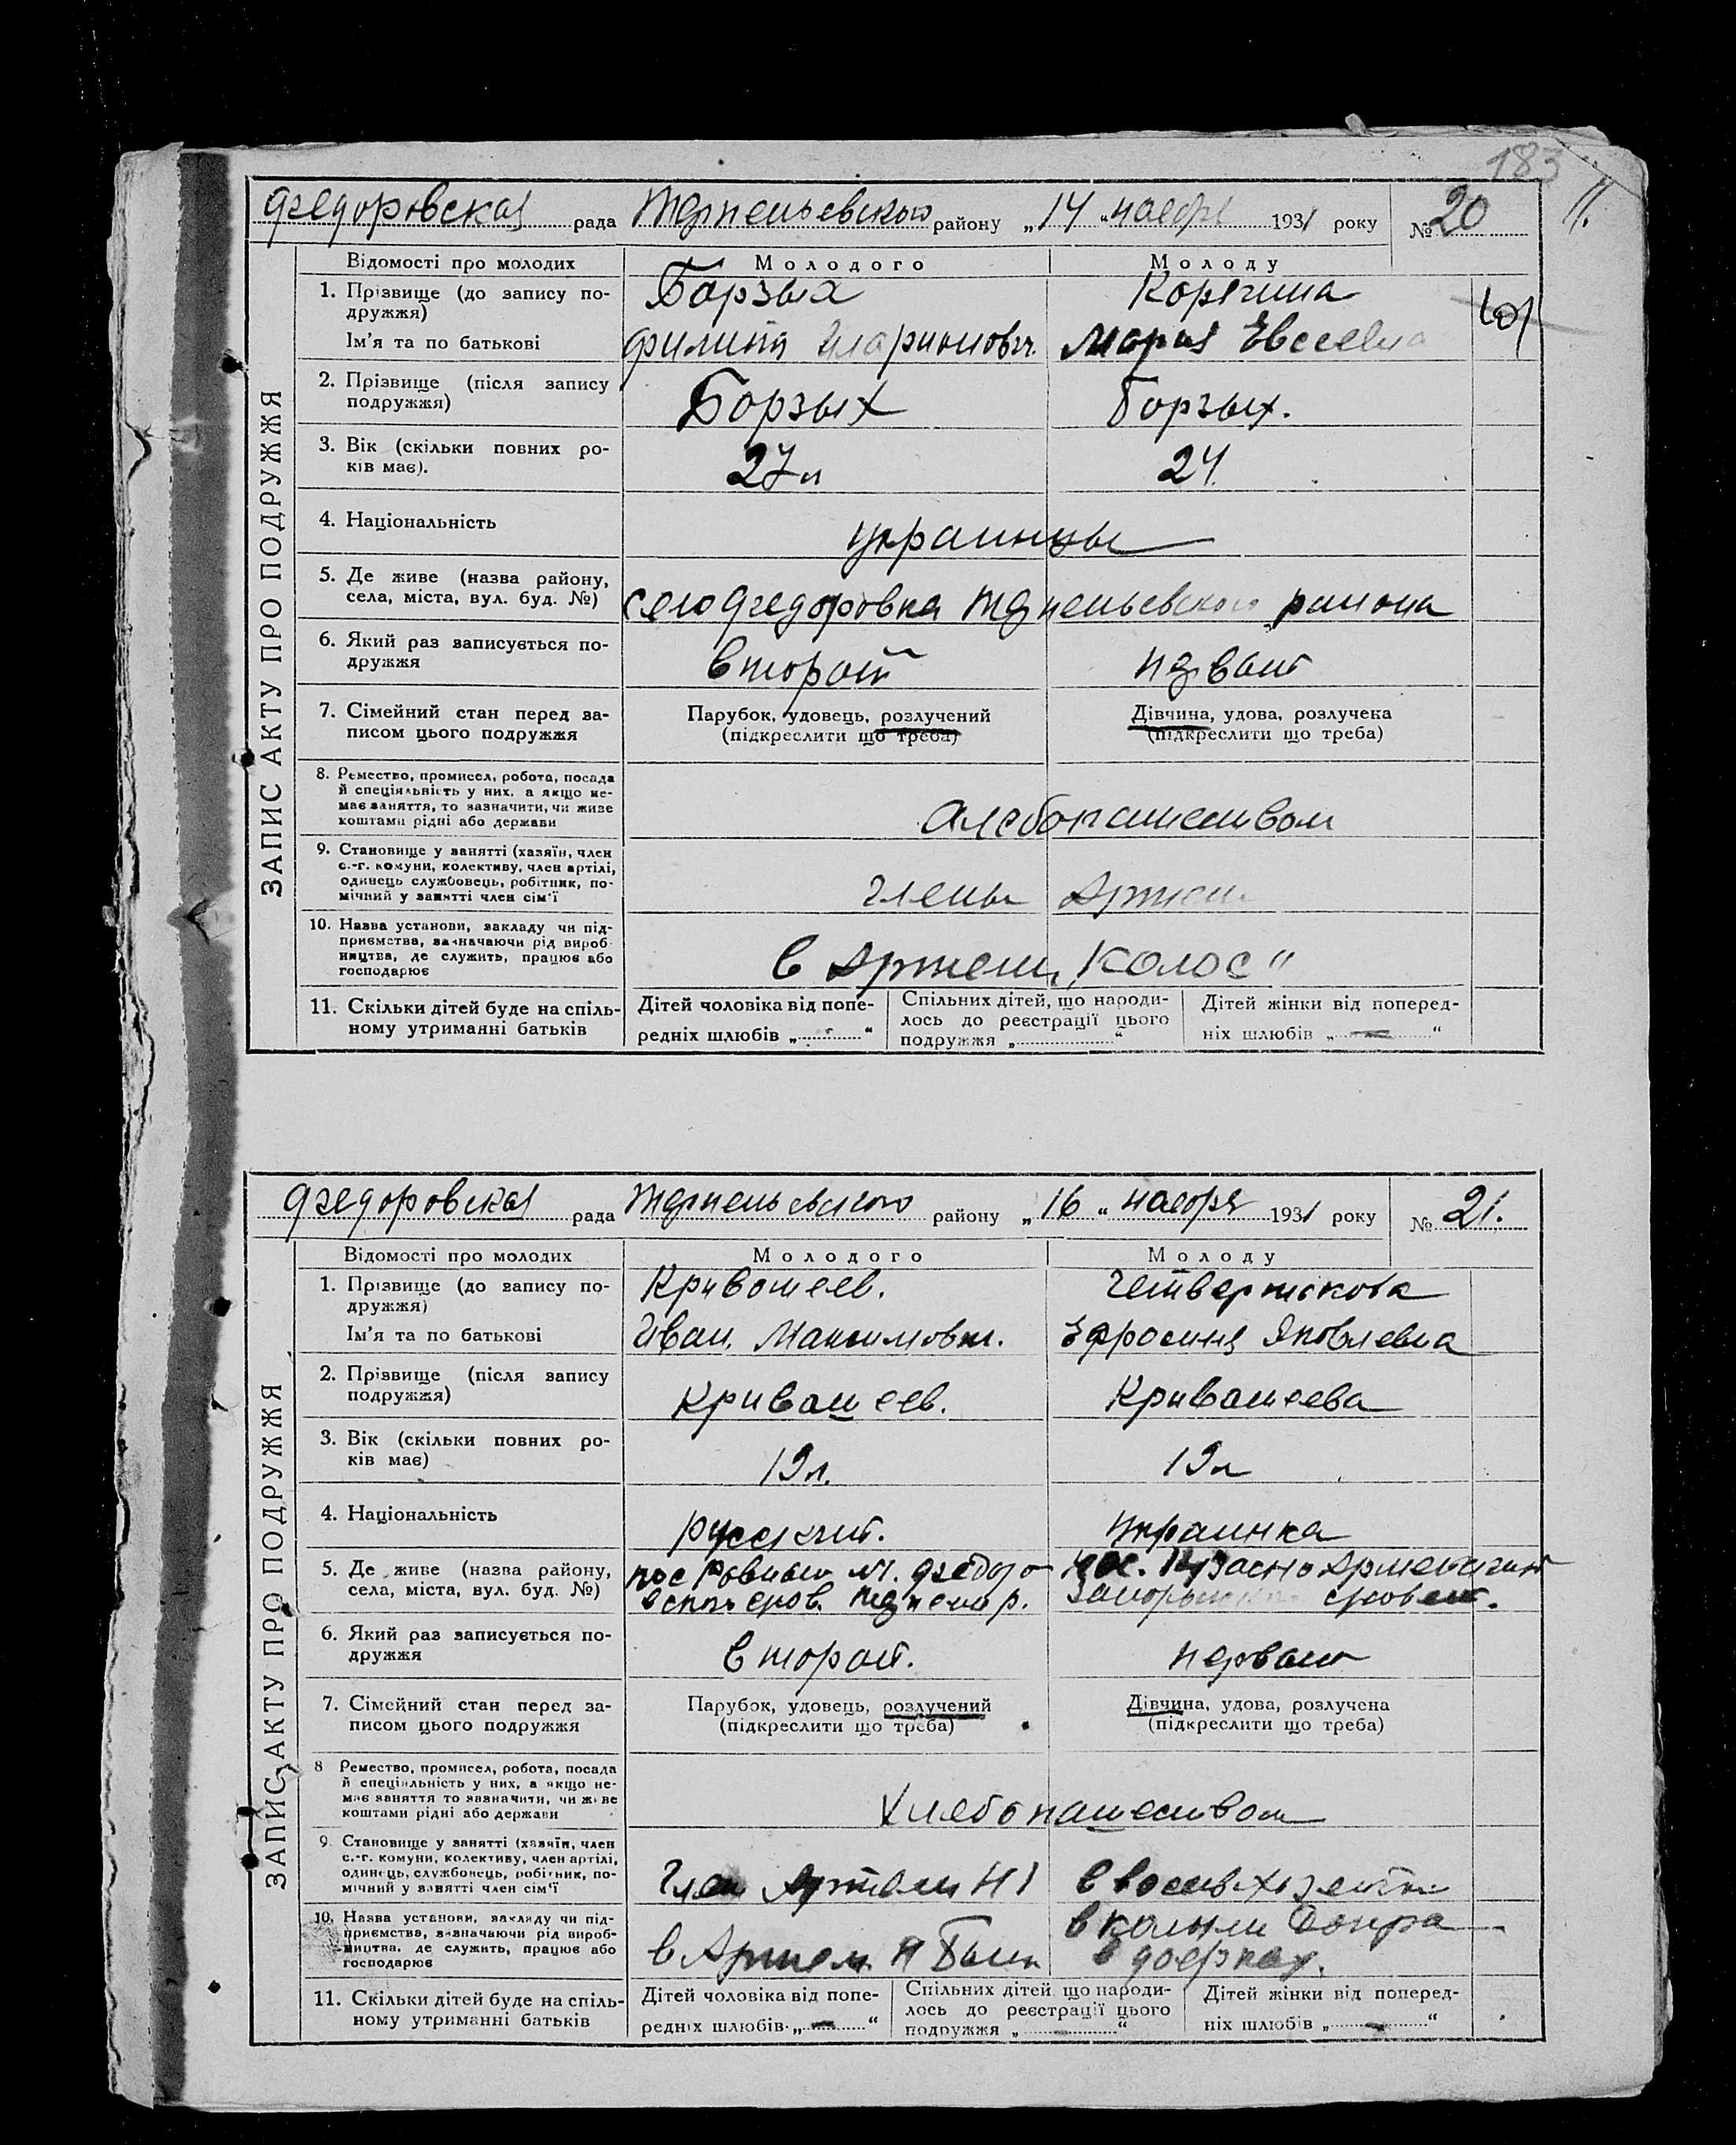 183
11.
Федоровская рада Терпеньевского району „14" ноября 1931 року №20
Відомості про молодих Молодого Молоду
ЗАПИС АКТУ ПРО ПОДРУЖЖЯ
1. Прізвище (до запису по- Борзых Корягина
дружжя)
Ім'я та по батькові Филипп Иларионович. Мария Евсеевна
2. Прізвище (після запису Борзых Борзых.
подружжя)
3. Вік (скільки повних ро- 27 л 24.
ків має).
4. Національність украинцы
5. Де живе (назва району,
села, міста, вул. буд. №) село Федоровка Терпеньевского района
6. Який раз записується по-
дружжя второй первый
7. Сімейний стан перед за- Парубок, удовець, розлучений Дівчина, удова, розлучека
писом цього подружжя (підкреслити що треба) (підкреслити що треба)
8. Ремество, промисел, робота, посада
й спеціяльність у них, а якщо не-
має заняття, то зазначити, чи живе
коштами рідні або держави хлебопашеством
9. Становище у занятті (хазяїн, член
с.-г. комуни, колективу, член артілі,
одинець службовець, робітник, по-
мічний у занятті член сім'ї члены Артели
10. Назва установи, закладу чи під-
приємства, зазначаючи рід вироб-
ництва, де служить, працює або
господарює в Артели „Колос"
11. Скільки дітей буде на спіль- Дітей чоловіка від попе- Спільних дітей, що народи- Дітей жінки від поперед-
ному утриманні батьків редніх шлюбів „ “ лось до реєстрації цього ніх шлюбів „ — “
подружжя „ “
Федоровская рада Терпеньевского району „16" ноября 1931 року № 21.
Відомості про молодих Молодого Молоду
ЗАПИС АКТУ ПРО ПОДРУЖЖЯ
1. Прізвище (до запису по- Кривошеев. Четвертакова
дружжя)
Ім'я та по батькові Иван Максимович. Эфросиня Яковлевна
2. Прізвище (після запису
подружжя) Кривашеев. Кривошеева
3. Вік (скільки повних ро-
ків має) 19 л. 19 л
4. Національність русский. украинка
5. Де живе (назва району, пос Ровный Федоро
села, міста, вул. буд. №) р.
6. Який раз записується по-
дружжя второй. первый
7. Сімейний стан перед за- Парубок, удовець, розлучений Дівчина, удова, розлучена
писом цього подружжя (підкреслити що треба) (підкреслити що треба)
8 Ремество, промисел, робота, посада
й спеціяльність у них, а якщо не-
має заняття то зазначити, чи живе
коштами рідні або держави хлебопашеством
9. Становище у занятті (хазяїн, член
с.-г. комуни, колективу, член артілі,
одинець, службовець, робітник, по-
мічний у занятті член сім'ї член Артели
10. Назва установи, закладу чи під-
приємства, зазначаючи рід вироб-
ництва, де служить, працює або
господарює в Артели
11. Скільки дітей буде на спіль- Дітей чоловіка від попе- Спільних дітей що народи- Дітей жінки від поперед-
ному утриманні батьків редніх шлюбів „ — “ лось до реєстрації цього ніх шлюбів „ — “
подружжя „ — “